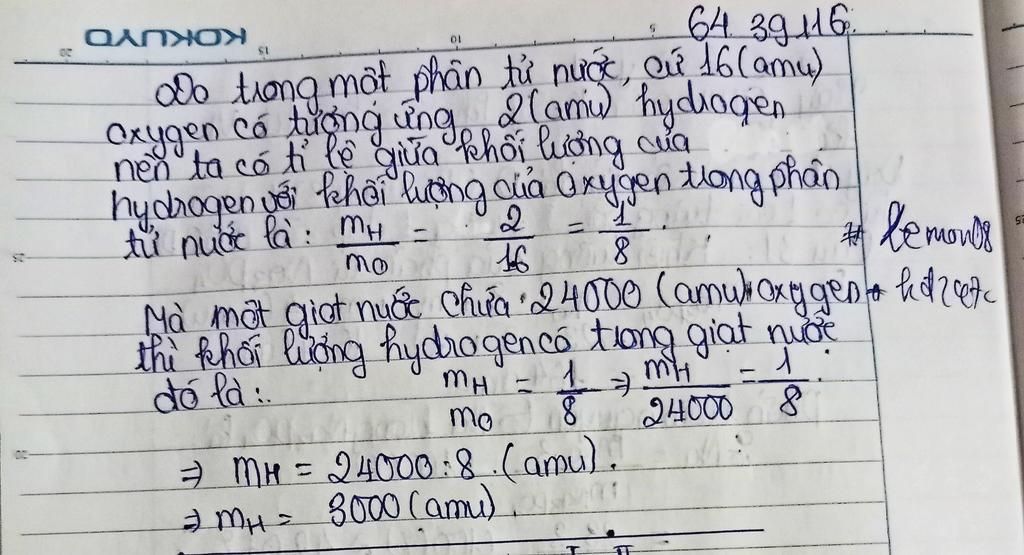 KOKUYO
5 10 15 20
64 39 116
Do trong một phân tử nước, cứ 16(amu)
oxygen có tương ứng 2(amu) hydrogen
nên ta có tỉ lệ giữa khối lượng của
hydrogen với khối lượng của oxygen trong phân
tử nước là: mH/mO = 2/16 = 1/8.
# lemon08
Mà một giọt nước chứa 24000 (amu) oxygen
thì khối lượng hydrogen có trong giọt nước
đó là: mH/mO = 1/8 ⇒ mH/24000 = 1/8.
⇒ mH = 24000:8 (amu).
⇒ mH = 3000(amu)